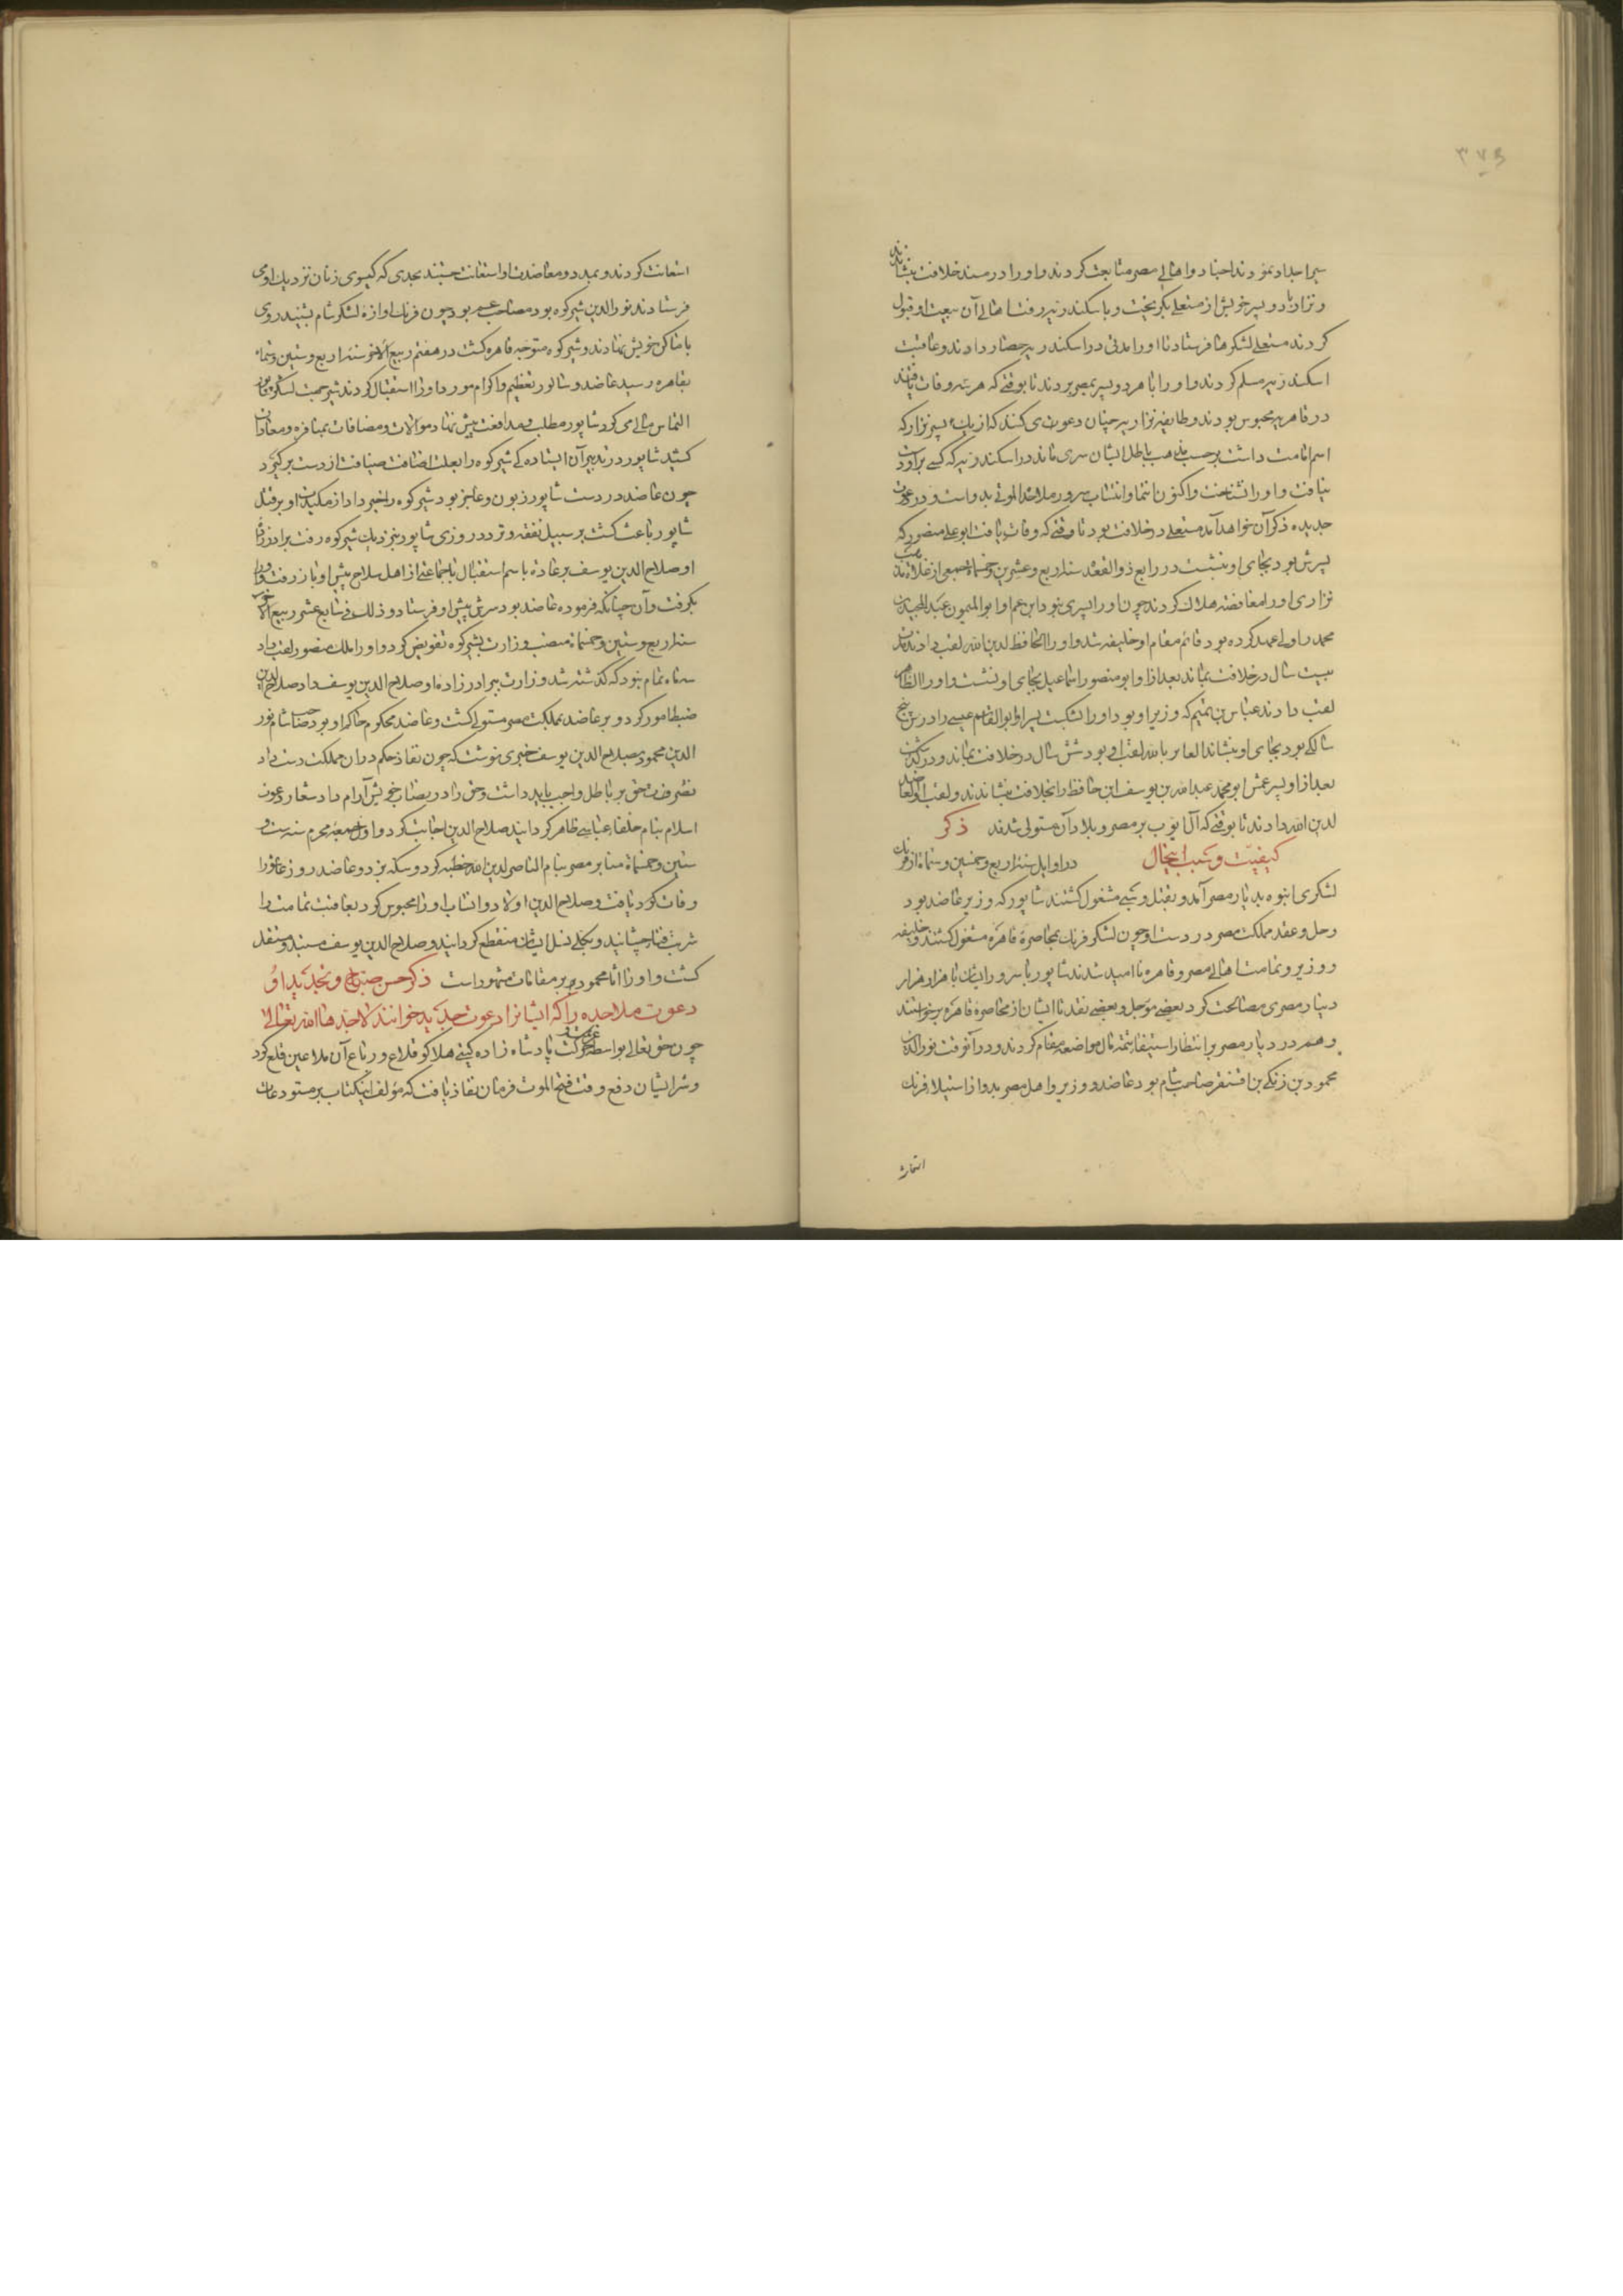 ۳۷۵
سپر اجداد نمودند اجناد و اهالی مصر متابعت کردند و او را در مسند خلافت بنشاندند
و نزار با دو پسر خویش از مستعلی بگریخت و باسکندریه رفت اهالی آن بیعت او قبول
کردند مستعلی لشکرها فرستاد تا او را مدتی در اسکندریه حصار دادند و عاقبت
اسکندریه مسلم کردند و او را با هر دو پسر بمصر بردند تا بوقتی که هر سه وفات یافتند
در قاهره محبوس بودند و طایفه نزاریه چنان دعوی می کنند که از یک پسر نزار که
اسم امامت داشت بر حسب مذهب باطل ایشان سری ماند در اسکندریه که کسی برو دست
نیافت و او را نشناخت و اکنون انتما و انتساب سرور ملاحده الموت بدو است و در دعوت
جدیده ذکر آن خواهد آمد مستعلی در خلافت بود تا وقتی که وفات یافت ابو علی منصور که
پسرش بود بجای او بنشست در رابع ذوالقعده سنه اربع و عشرین و خمسمایه جمعی از غلاة مذهب
نزاری او را مغافصه هلاک کردند چون او را پسری نبود ابن عم او ابو المیمون عبد المجید بن
محمد را ولی عهد کرده بود قائم مقام او خلیفه شد و او را الحافظ لدین الله لقب دادند مدت
بیست سال در خلافت بماند بعد ازو ابو منصور اسماعیل بجای او نشست و او را الظافر
لقب دادند عباس بن تمیم که وزیر او بود او را بکشت پسر او ابو القاسم عیسی را در سن پنج
سالگی بود بجای او بنشاند الفایز بالله لقب او بود شش سال در خلافت بماند و درگذشت
بعد ازو پسر عمش ابو محمد عبد الله بن یوسف ابن حافظ را بخلافت بنشاندند و لقب او العاضد
لدین الله دادند تا بوقتی که آل ایوب بر مصر و بلاد آن مستولی شدند ذکر
کیفیت و سبب اینحال در اوایل سنه اربع و خمسین و ستمایه از فرنک
لشکری انبوه بدیار مصر آمد و بقتل و سبی مشغول کشتند شاپور که وزیر عاضد بود
و حل و عقد مملکت مصر در دست او چون لشکر فرنک بمحاصرة قاهره مشغول کشتند و خلیفه
و وزیر و تمامت اهالی مصر و قاهره نا امید شدند شاپور با سرور ایشان با هزار هزار
دینار مصری مصالحت کرد بعضی موجل و بعضی نقد تا ایشان از محاصرة قاهره برخواستند
و هم در دیار مصر بر انتظار استیفاء تتمه مال مواضعه مقام کردند و در آنوقت نور الدین
محمود بن زنکی بن اقسنقر صاحب شام بود عاضد و وزیر و اهل مصر بدو از استیلاء فرنک
استعانت
استعانت کردند و بمدد و معاضدت او استغاثت جستند بحدی که کیسوی زنان نزدیک او می
فرستادند نور الدین شیرکوه بود مصاحب بود چون فرنک اوازه لشکر شام بشنید روی
باماکن خویش نهادند و شیرکوه متوجه قاهره کشت در هفتم ربیع الاخر سنه اربع و ستین و ستمایه
بقاهره رسید عاضد و شاپور بتعظیم و اکرام مورد او را استقبال کردند شیر جهت لشکر
التماس مالی می کرد شاپور مطلب و مدافعت پیش نهاد موالات و مصافات بمنافره و معادات
کشید شاپور در تدبیر آن ایستاده کی شیرکوه را بعلت اضافت ضیافت از دست برگیرد
چون عاضد در دست شاپور زبون و عاجز بود شیرکوه را خبر داد از مکیدت او بر قتل
شاپور باعث کشت بر سبیل تفقد و تردد روزی شاپور بنزدیک شیرکوه رفت برادرزاده
او صلاح الدین یوسف بر عاده باسم استقبال با جماعتی از اهل سلاح پیش او باز رفت و او را
بکرفت و آن چنانکه فرموده عاضد بود سرش پیش او فرستاد و ذلک فی سابع عشر ربیع الاخر
سنه اربع و ستین و خمسمایه منصب وزارت بشیرکوه تفویض کرد و او را ملک منصور لقب داد
سه ماه تمام نبود که کذشته شد وزارت ببرادرزاده او صلاح الدین یوسف داد صلاح الدین
ضبط امور کرد و بر عاضد بمملکت مصر مستولی کشت و عاضد محکوم حکم او بود صاحب شام نور
الدین محمود بصلاح الدین یوسف خبری نوشت که چون نفاذ حکم در ان مملکت دست داد
نصرت حق بر باطل واجب باید داشت و حق را در نصاب خویش آرام داد شعار دعوت
اسلام بنام خلفاء عباسی ظاهر گرداند صلاح الدین اجابت کرد و اول جمعه محرم سنه ست و
ستین و خمسمایه منابر مصر بنام الناصر لدین الله خطبه کرد و سکه بزد و عاضد روز عاشورا
وفات کرد یافت و صلاح الدین اولاد و انساب او را محبوس کرد بعاقبت تمامت را
شربت فنا چشانید و بکلی نسل ایشان منقطع کردانید و صلاح الدین یوسف مستبد و مستقل
کشت و او را آثار محمود بر مقامات مشهود است ذکر حسن صباح و تجدید او
دعوت ملاحده را که ایشانرا دعوت جدید خوانند لا جددها الله تعالی
چون حق تعالی بواسطه عزیمت و حرکت پادشاه زاده کیتی هلاکو قلاع و رباع آن ملاعین قلع کرد
و شر ایشان دفع وقت فتح الموت فرمان نفاذ یافت که مولف اینکتاب بر مستودعات